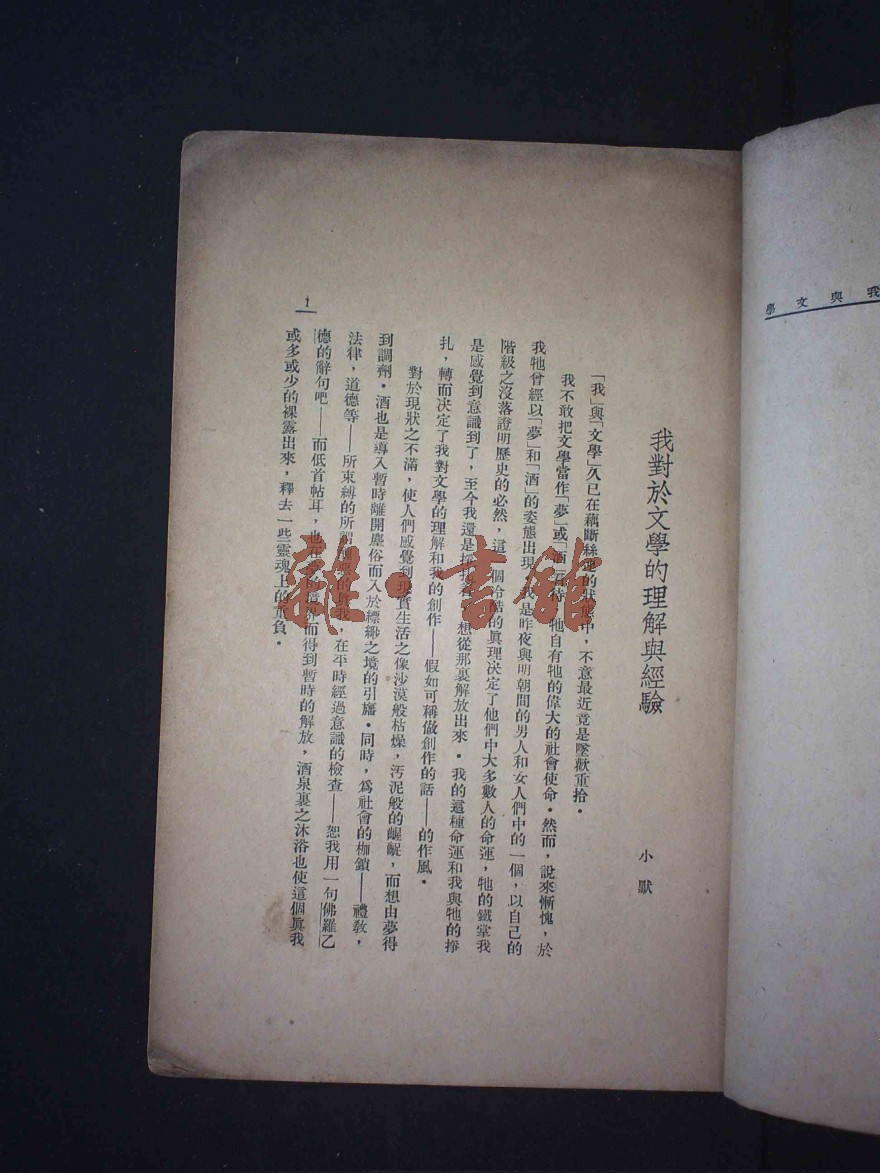 我與文學
我對於文學的理解與經驗
小默
「我」與「文學」久已在藕斷絲連的狀態中，不意最近竟是墜歡重拾。
我不敢把文學當作「夢」或「酒」看待，牠自有牠的偉大的社會使命。然而，說來慚愧，於
我牠曾經以「夢」和「酒」的姿態出現。我是昨夜與明朝間的男人和女人們中的一個，以自己的
階級之沒落證明歷史的必然，這一個冷酷的眞理决定了他們中大多數人的命運，牠的鐵掌我
是感覺到意識到了，至今我還是掙扎着，想從那裏解放出來。我的這種命運和我與牠的掙
扎，轉而决定了我對文學的理解和我的創作——假如可稱做創作的話——的作風。
對於現狀之不滿，使人們感覺到現實生活之像沙漠般枯燥，汚泥般的齷齪，而想由夢得
到調劑。酒也是導入暫時離開塵俗而入於縹緲之境的引旛。同時，爲社會的枷鎖——禮敎，
法律，道德等——所束縛的所謂的眞我，在平時經過意識的檢查——恕我用一句佛羅乙
德的辭句吧——而低首帖耳，也在的境界而得到暫時的解放，酒泉裏之沐浴也使這個眞我
或多或少的裸露出來，釋去一些靈魂上的重負。
1
雜·書館